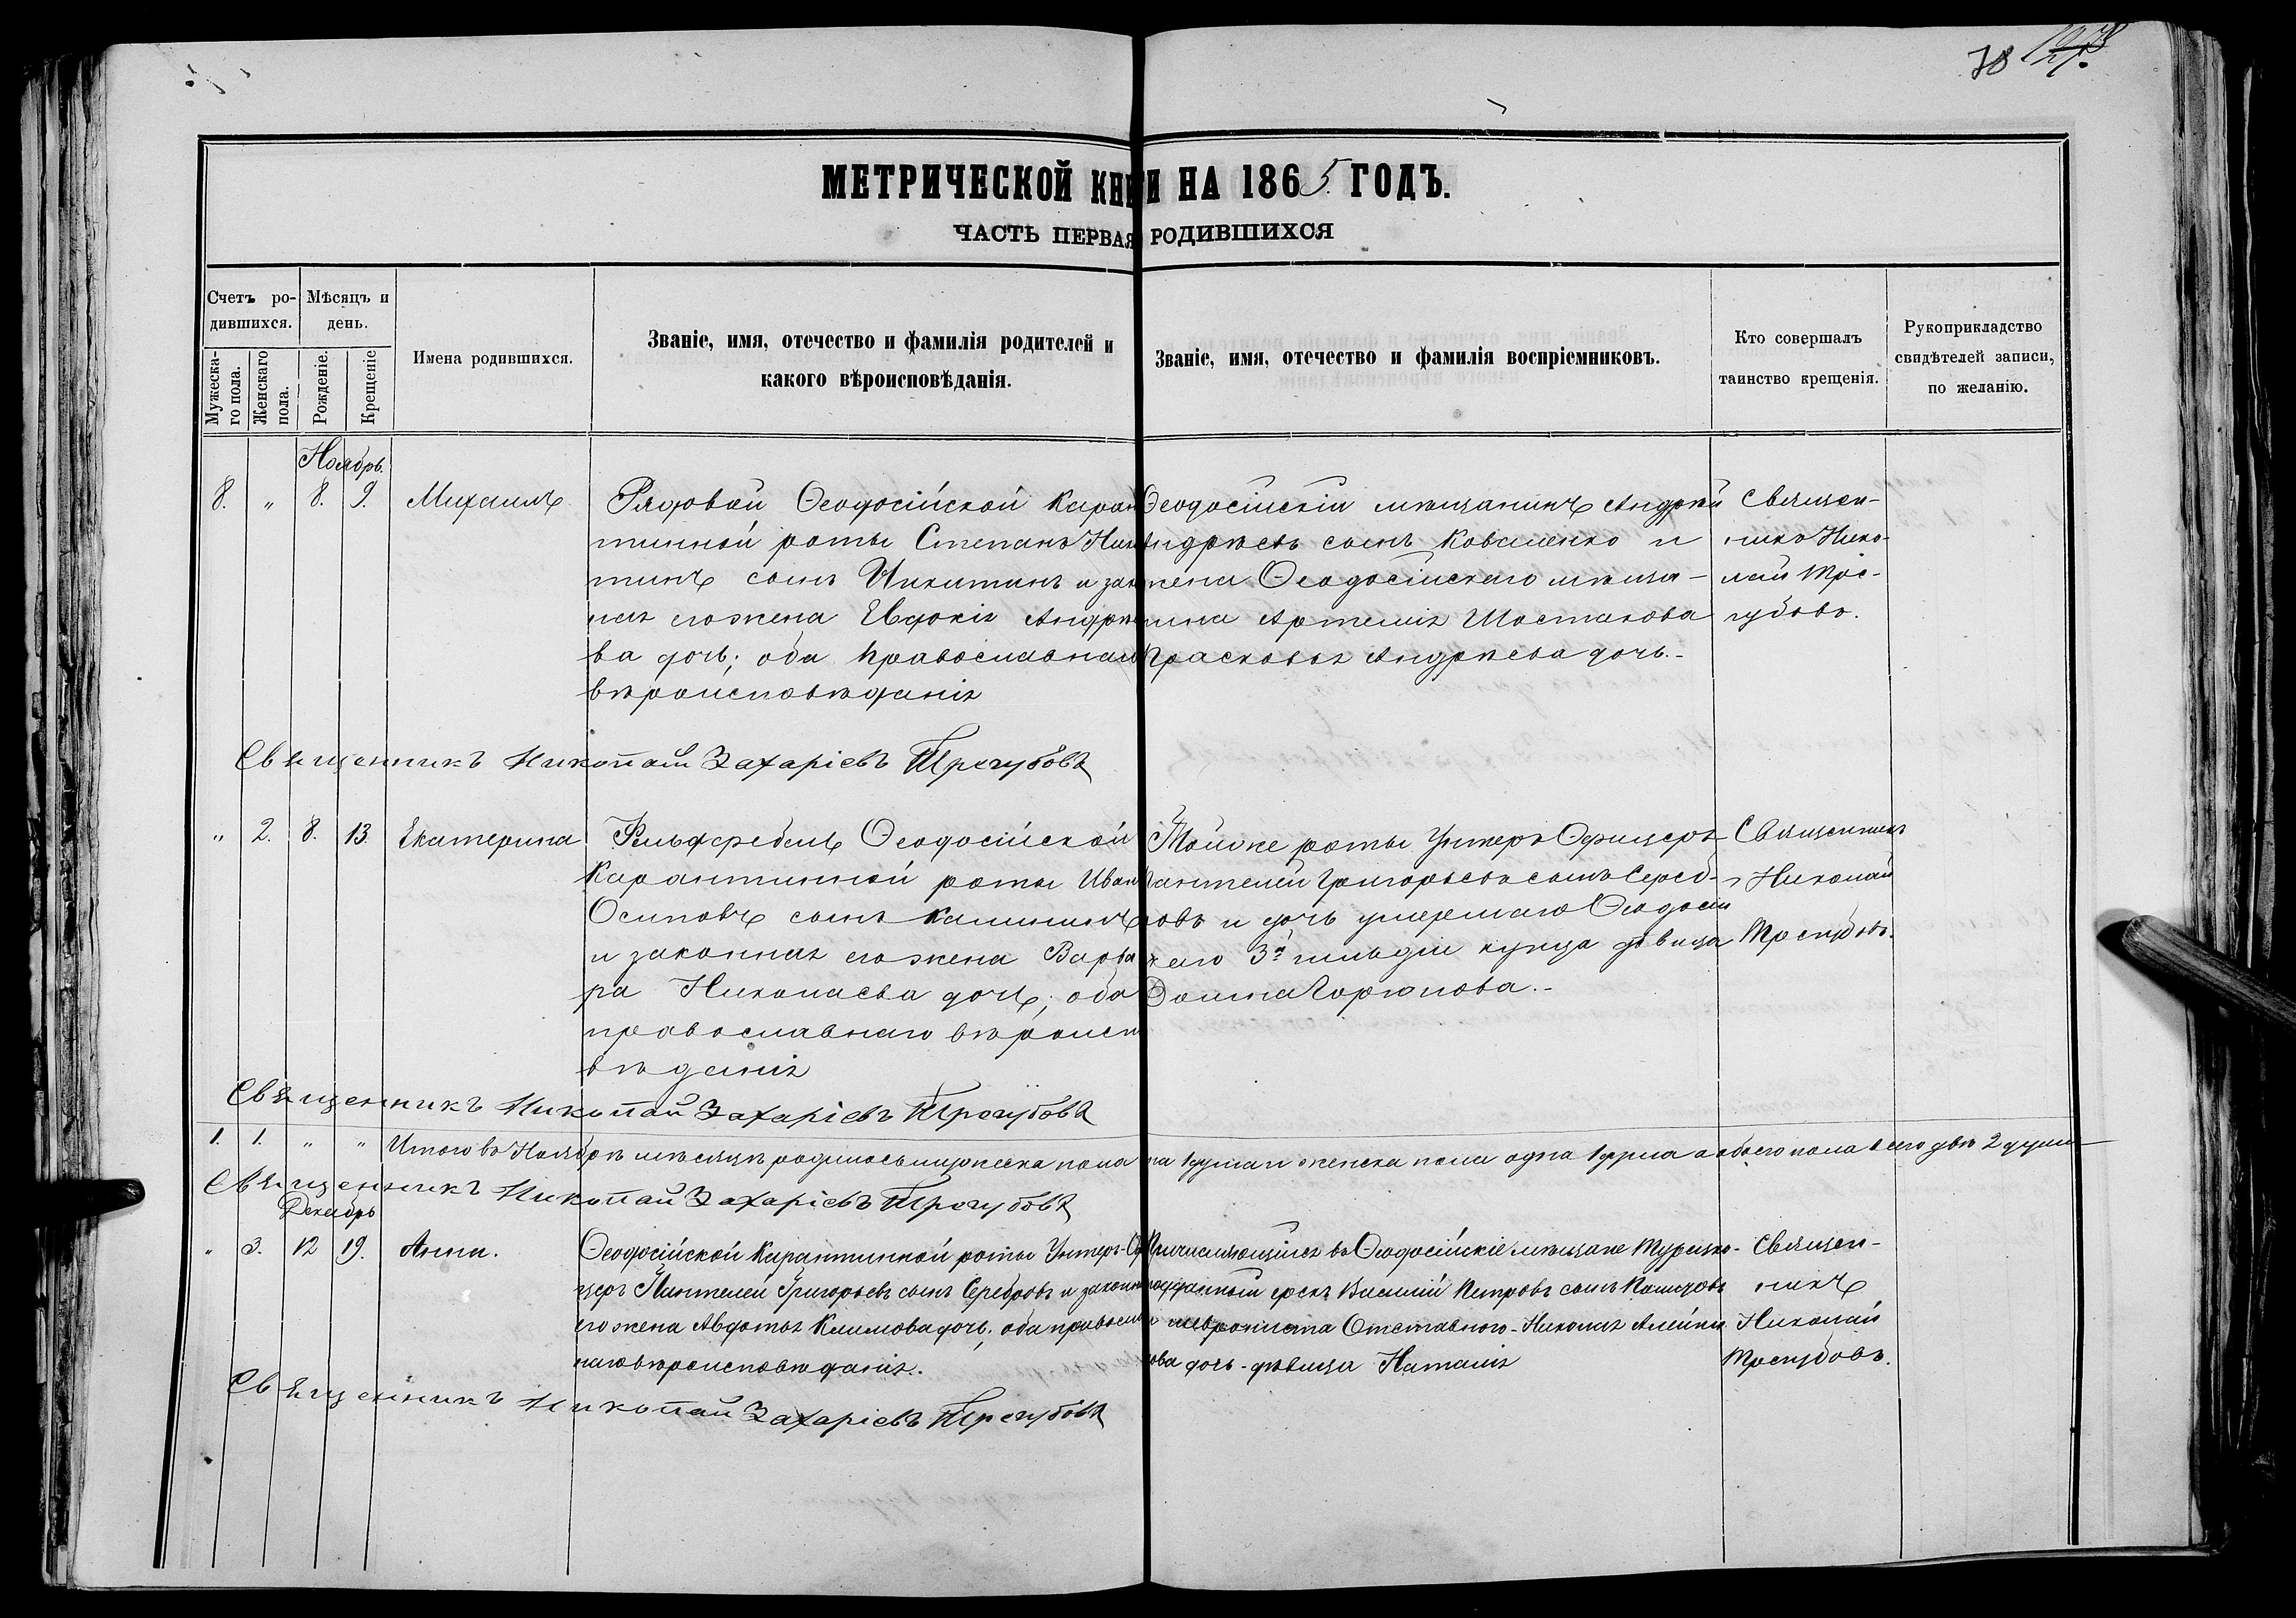 78
МЕТРИЧЕСКОЙ КНИГИ НА 1865 ГОДЪ.
ЧАСТЬ ПЕРВАЯ РОДИВШИХСЯ
Счетъ ро-
дившихся.
Мужеска-
го пола.
Женскаго
пола.
Мѣсяцъ и
день.
Рожденіе.
Крещеніе
Имена родившихся.
Званіе, имя, отечество и фамилія родителей и
какого вѣроисповѣданія.
Званіе, имя, отечество и фамилія воспріемниковъ.
Кто совершалъ
таинство крещенія.
Рукоприкладство
свидѣтелей записи,
по желанію.
Ноябрь.
8. " 8. 9. Михаилъ
Рядовой Ѳеодосійской Каран
тинной роты Степанъ Ники
тинъ сынъ Никитинъ и закон
ная его жена Евдокія Андрѣе
ва дочь; оба православнаго
вѣроисповѣданія
Ѳеодосійскій мѣщанинъ Андрей
Андрѣевъ сынъ Коваленко и
жена Ѳеодосійскаго мѣща-
нина Артемія Шостакова
Прасковья Андрѣева дочь.-
Священ-
никъ Нико-
лай Трегубовъ.
Священникъ Николай Захаріевъ Трегубовъ
" 2. 8. 13. Екатерина
Фельдфебель Ѳеодосійской
Карантинной роты Иванъ
Осиповъ сынъ Калининъ
и законная его жена Варва
ра Николаева дочь; оба
православнаго вѣроиспо
вѣданія
Тойже роты Унтеръ Офицеръ
Пантелей Григорьевъ сынъ Сереб-
ровъ и дочь умершаго Ѳеодосій
скаго 3й гильдіи купца дѣвица
Горюнова.-
Священникъ
Николай
Трегубовъ.
Священникъ Николай Захаріевъ Трегубовъ
1. 1. " " Итого въ Ноябрѣ мѣсяцѣ родилось мужеска пола одна 1 душа и женска пола одна 1 душа а обоего пола всего двѣ 2 души
Священникъ Николай Захаріевъ Трегубовъ
Декабрь
" 3. 12 19. Анна.
Ѳеодосійской Карантинной роты Унтеръ-Офи
церъ Пантелей Григорьевъ сынъ Серебровъ и законная
его жена Авдотья Климова дочь; оба православ
наго вѣроисповѣданія.
Причисляющійся въ Ѳеодосійскіе мѣщане Турецко-
подданный грекъ Василій Петровъ сынъ
и Отставного Николая Алейни
кова дочь - дѣвица Наталія
Священ-
никъ
Николай
Трегубовъ.
Священникъ Николай Захаріевъ Трегубовъ